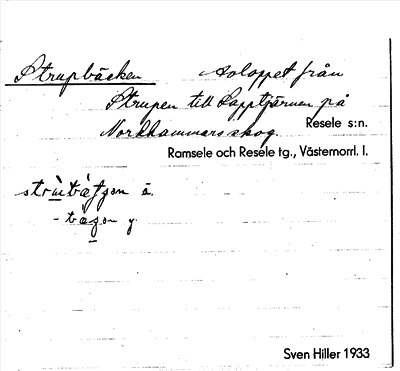 Strupbäcken Avloppet från
Strupen till Lapptjärnen på
Norrhammars skog. Resele s:n.
Ramsele och Resele tg., Västernorrl. l.
Sven Hiller 1933